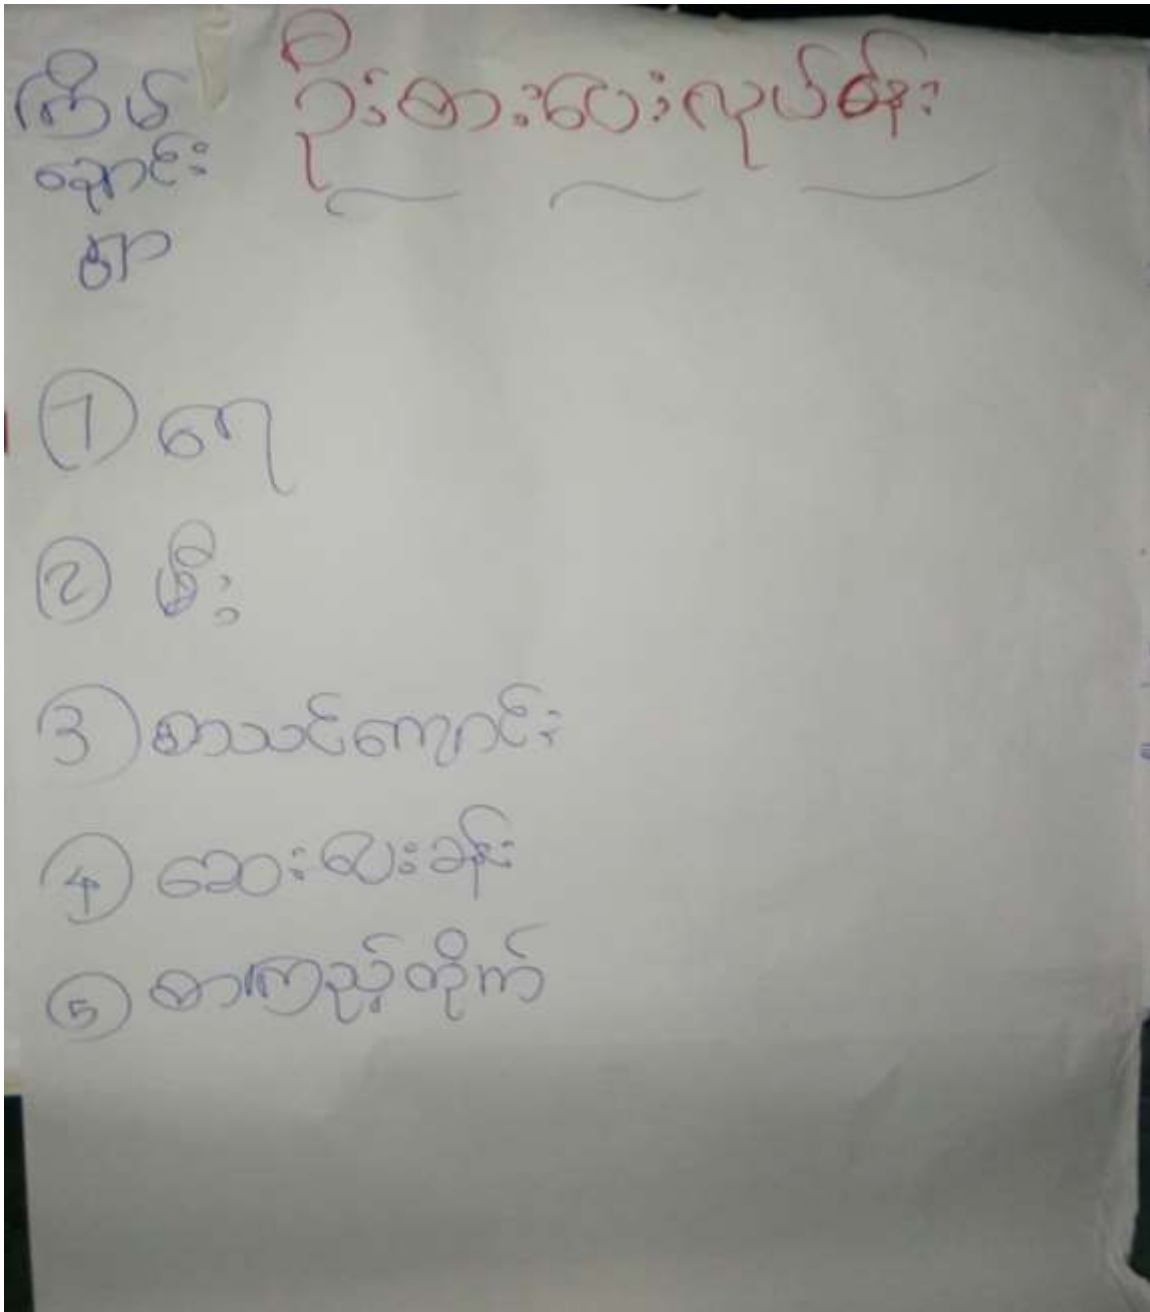 ကြိမ်
ချောင်း
ရွာ
ဦးစားပေးလုပ်ငန်း
① ရေ
② မီး
③ စာသင်ကျောင်း
④ ဆေးပေးခန်း
⑤ စာကြည့်တိုက်